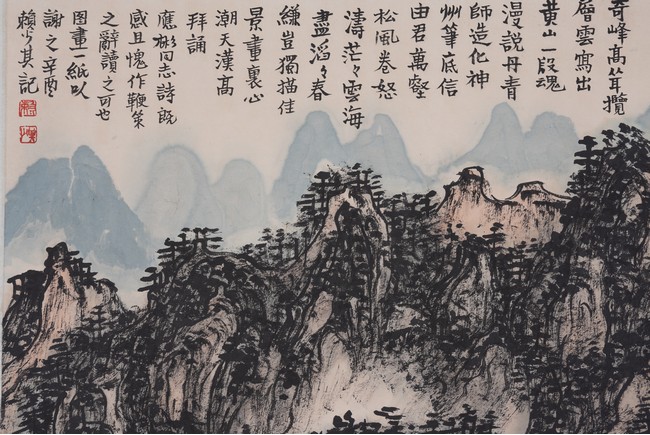 奇峰高耸攬
層雲寫出
黃山一段魂
漫說丹青
師造化神
州筆底信
由君萬壑
松風卷怒
濤茫々雲海
盡滔々春
縑豈獨描佳
景畫裏心
潮天漢高
拜誦
應彬同志詩既
感且愧作鞭策
之辭讀之可也
图畫一紙以
謝之辛酉
賴少其記